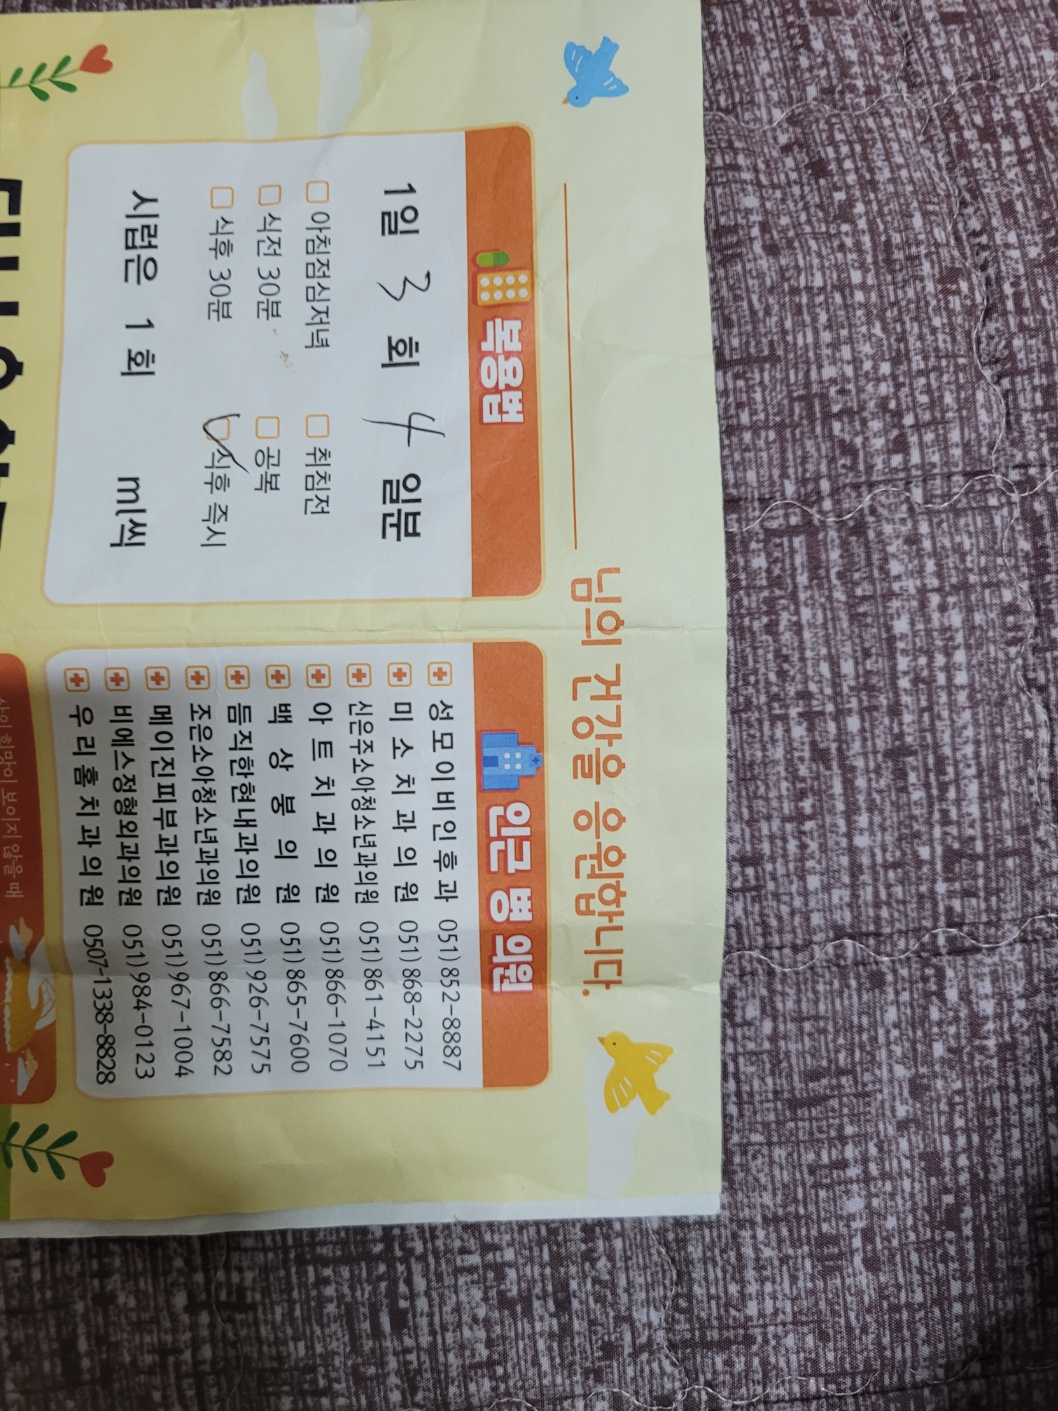 님의 건강을 응원합니다.
복용법
1일 3 회 4 일분
아침점심저녁 취침전
식전 30분 공복
식후 30분 식후 즉시
시럽은 1 회 ml씩
인근 병 의원
성모이비인후과 051)852-8887
미소치과의원 051)868-2275
신은주소아청소년과의원 051)861-4151
아트치과의원 051)866-1070
백상붕의원 051)865-7600
듬직한현내과의원 051)926-7575
조은소아청소년과의원 051)866-7582
메이진피부과의원 051)967-1004
비에스정형외과의원 051)984-0123
우리홈치과의원 0507-1338-8828
희망이 보이지 않을 때